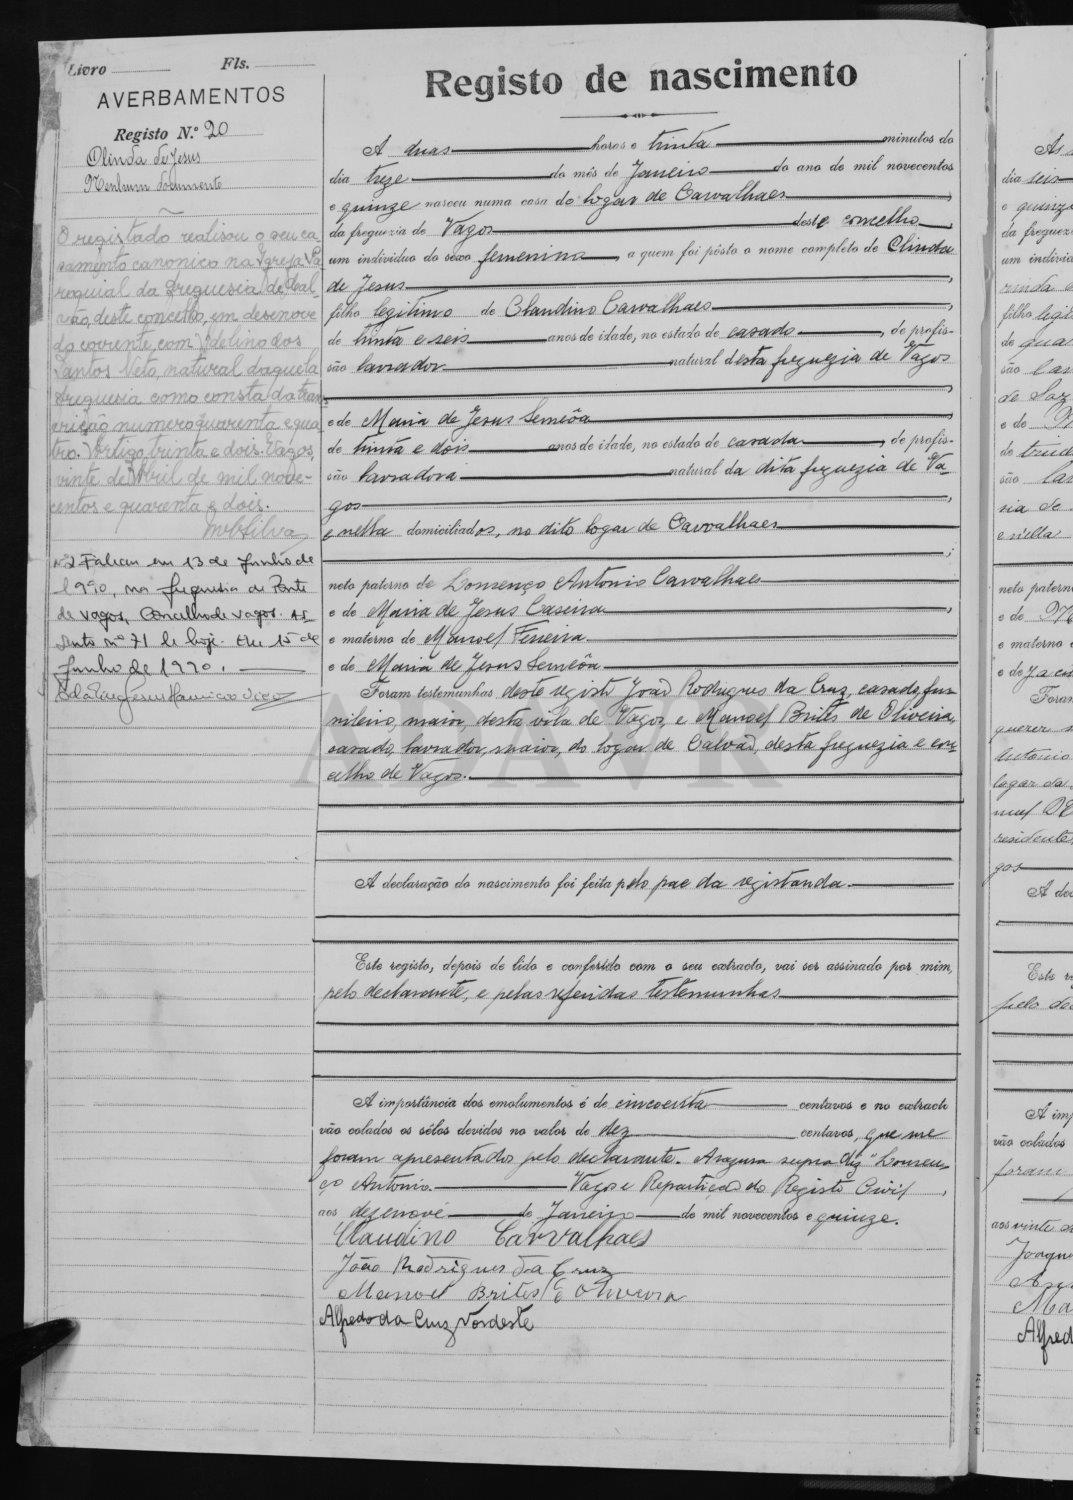 Livro Fls.
AVERBAMENTOS
Registo N.º 20
Olinda de Jesus
Nenhum documento
O registado realisou o seu ca-
samento canonico na Igreja Pa-
roquial da freguesia de Cal-
vão, deste concelho, em dezenove
do corrente, com Adelino dos
Santos Neto, natural daquela
freguesia como consta da trans-
crição numero quarenta e qua-
tro. Artigo, trinta e dois. Vagos,
vinte de Abril de mil nove-
centos e quarenta e dois.
MCSilva
nº2 Faleceu em 13 de Junho de
1990, na freguesia de Ponte
de Vagos, Concelho de Vagos.
Assento nº 71 de hoje. Em 15 de
Junho de 1990.
Registo de nascimento
A duas horas e trinta minutos do
dia treze do mês de Janeiro do ano de mil novecentos
e quinze nasceu numa casa do logar de Carvalhaes
da freguezia de Vagos deste concelho
um individuo do sexo femenino, a quem foi pôsto o nome completo de Olinda
de Jesus
filho legitimo de Claudino Carvalhaes
de trinta e seis anos de idade, no estado de casado, de profis-
são lavrador natural desta freguezia de Vagos
e de Maria de Jesus Semeôa
de trinta e dois anos de idade, no estado de casada, de profis-
são lavradora natural da dita freguezia de Va-
gos
e nella domiciliados, no dito logar de Carvalhaes
neto paterno de Lourenço Antonio Carvalhaes
e de Maria de Jesus Caseira
e materno de Manoel Ferreira
e de Maria de Jesus Semeôa
Foram testemunhas deste registo João Rodrigues da Cruz, casado, fu-
nileiro, maior, desta vila de Vagos, e Manoel Brites de Oliveira,
casado, lavrador, maior, do logar de Calvão, desta freguezia e con-
celho de Vagos.
ADAVR
A declaração do nascimento foi feita pelo pae da registanda.
Este registo, depois de lido e conferido com o seu extracto, vai ser assinado por mim,
pelo declarante, e pelas referidas testemunhas
A importância dos emolumentos é de cincoenta centavos e no extracto
vão colados os sêlos devidos no valor de dez centavos, que me
foram apresentados pelo declarante. A rasura supra diz "Louren-
ço Antonio. Vagos e Repartição do Registo Civil,
aos dezenove de Janeiro de mil novecentos e quinze.
Claudino Carvalhaes
João Rodrigues da Cruz
Manoel Brites de Oliveira
Alfredo da Cruz Nordeste